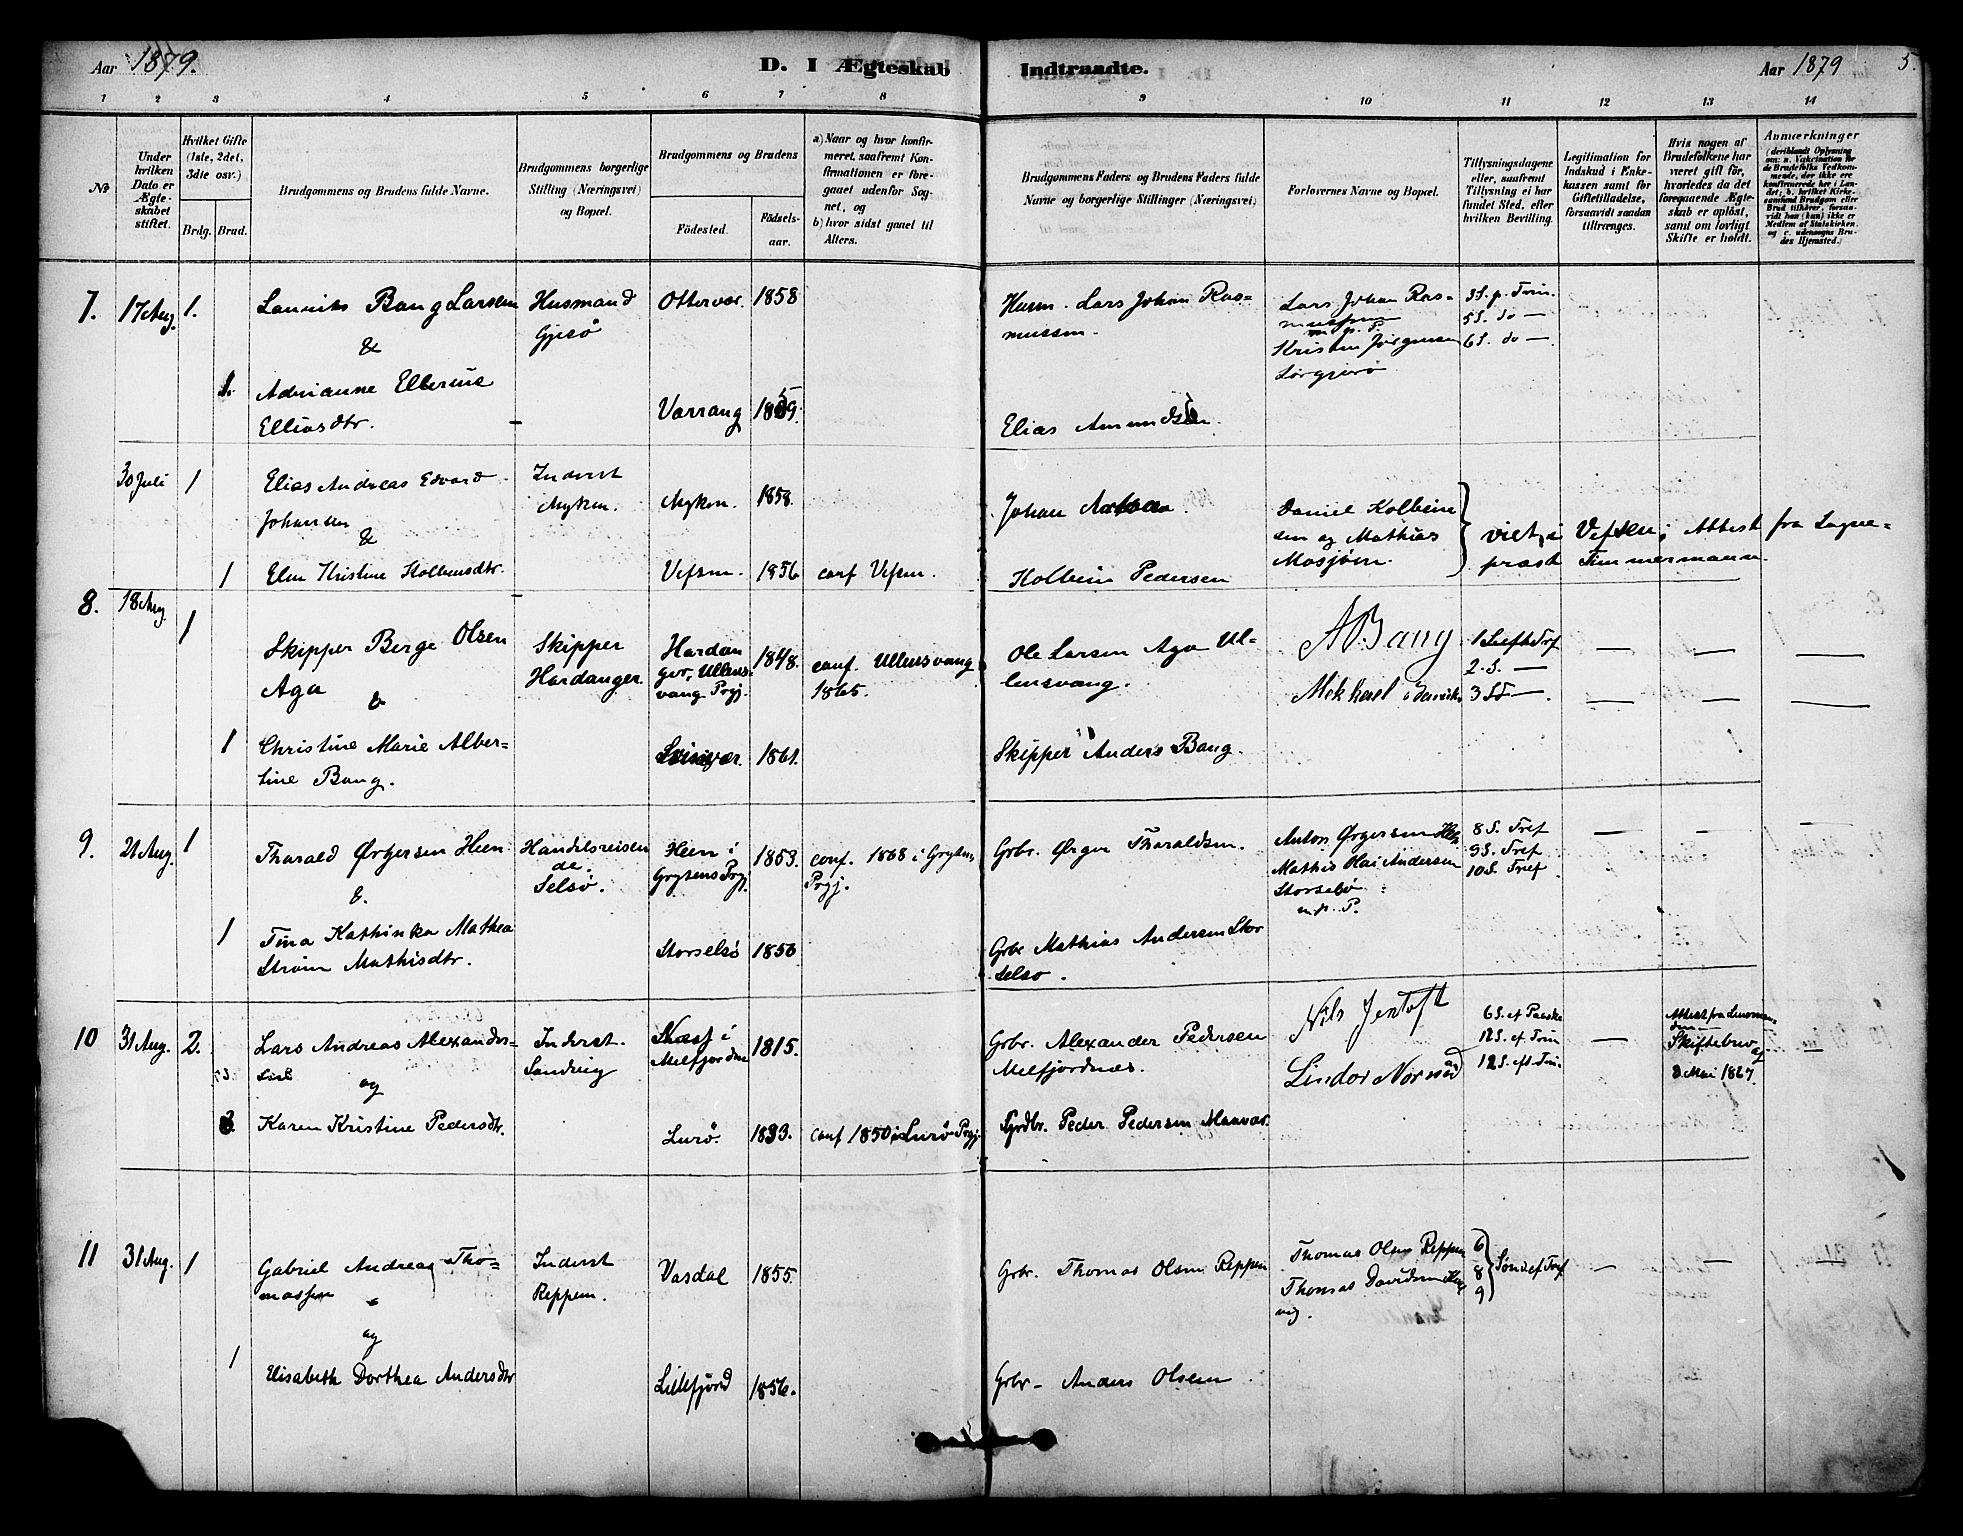 Aar 1879.
D. I Ægteskab Indtraadte.
Aar 1879
5.
1 2 3 4 5 6 7 8 9 10 11 12 13 14
No
Under
hvilken
Dato er
Ægte-
skabet
stiftet.
Hvilket Gifte
(1ste, 2det,
3die osv.)
Brdg. Brud.
Brudgommens og Brudens fulde Navne.
Brudgommens borgerlige
Stilling (Næringsvei)
og Bopæl.
Brudgommens og Brudens
Fødested.
Fødsels-
aar.
a) Naar og hvor konfir-
meret, saafremt Kon-
firmationen er fore-
gaaet udenfor Sog-
net, og
b) hvor sidst gaaet til
Alters.
Brudgommens Faders og Brudens Faders fulde
Navne og borgerlige Stillinger (Næringsvei)
Forlovernes Navne og Bopæl.
Tillysningsdagene
eller, saafremt
Tillysning ei har
fundet Sted, efter
hvilken Bevilling.
Legitimation for
Indskud i Enke-
kassen samt for
Giftetilladelse,
forsaavidt saadan
tiltrænges.
Hvis nogen af
Brudefolkene har
været gift før,
hvorledes da det
foregaaende Ægte-
skab er opløst,
samt om lovligt
Skifte er holdt.
Anmærkninger
(deriblandt Oplysning
om: a. Vakcination for
de Brudefolks Vedkom-
mende, der ikke ere
konfirmerede her i Lan-
det; b. hvilket Kirke-
samfund Brudgom eller
Brud tilhører, forsaa-
vidt han (hun) ikke er
Medlem af Statskirken,
og c. udensogns Bru-
des Hjemsted.)
7. 17 Aug. 1. Laurits Bang Larsen
&
Husmand
Gjesø
Ottervær. 1858
Husm. Lars Johan Ras-
mussen.
Lars Johan Ras-
mussen
m. p. P.
Kristen Jörgensen
Sörgjerö
3 S. p. Trin.
5 S. do —
6 S. do —.
1. Adrianne Ellerine
Elliasdtr.
Varrang 1859.
Elias Amundsen.
30 Juli 1 Elias Andreas Edvard
Johansen
&
Inderst
Myken.
Myken. 1858.
Johan
Daniel Kolbein
sen og Mathias
Mosjøen.
viet i Vefsen; Attest fra Sogne-
præst Timmermann.
1 Elen Kristine Kolbensdtr.
Vefsen. 1856 conf Vefsen.
Kolbein Pedersen
8. 18 Aug. 1 Skipper Berge Olsen
Aga
&
Skipper
Hardanger
Hardan
ger, Ullens-
vang Prgj.
1848. conf. Ullensvang
1865.
Ole Larsen Aga Ul-
lensvang.
A Bang
Mekkael
1 S eft Tref
2. S. —
3 S —
1 Christine Marie Alber-
tine Bang.
Svinvær. 1861.
Skipper Anders Bang.
9. 21 Aug. 1 Tharald Ørgersen Heen
&.
Handelsreisen
de.
Selsø.
Heen i
Grytens Prgj.
1853. conf. 1868 i Grytens
Prgj.
Grbr. Ørger Tharaldsen.
Anton Ørgersen Heen
Mathis Olai Andersen
Storselsö
m. p. P.
8 S. Tref
9 S. Tref
10 S. Tref
1 Tina Kathinka Mathea
Strøm Mathisdtr.
Storselsö 1850
Grbr Mathias Andersen Stor
selsø.
10 31 Aug. 2. Lars Andreas Alexander-
sen
og
Inderst.
Sandvig
Næss i
Melfjorden
1815.
Grbr. Alexander Pedersen
Melfjordnæs.
Nils Jentoft
Lindor Norvad
6 S. ef Paaske
11 S. ef Trin
12 S. eft Trin.
Attest fra Lensman-
den
Skiftebrev af
8 Mai 1867.
Karen Kristine Pedersdtr.
Lurö. 1833. conf 1850 i Lurö Prgj.
Grdbr. Peder Pedersen Maavær.
11 31 Aug. 1 Gabriel Andreas Tho-
massen
og
Inderst
Reppen.
Vasdal 1855.
Grbr. Thomas Olsen Reppen
Thomas Olsen Reppen
Thomas Davidsen
vig.
6
8
9
Sönd. ef Tref
1 Elisabeth Dorthea Andersdtr
Lillefjord 1856.
Grbr — Anders Olsen